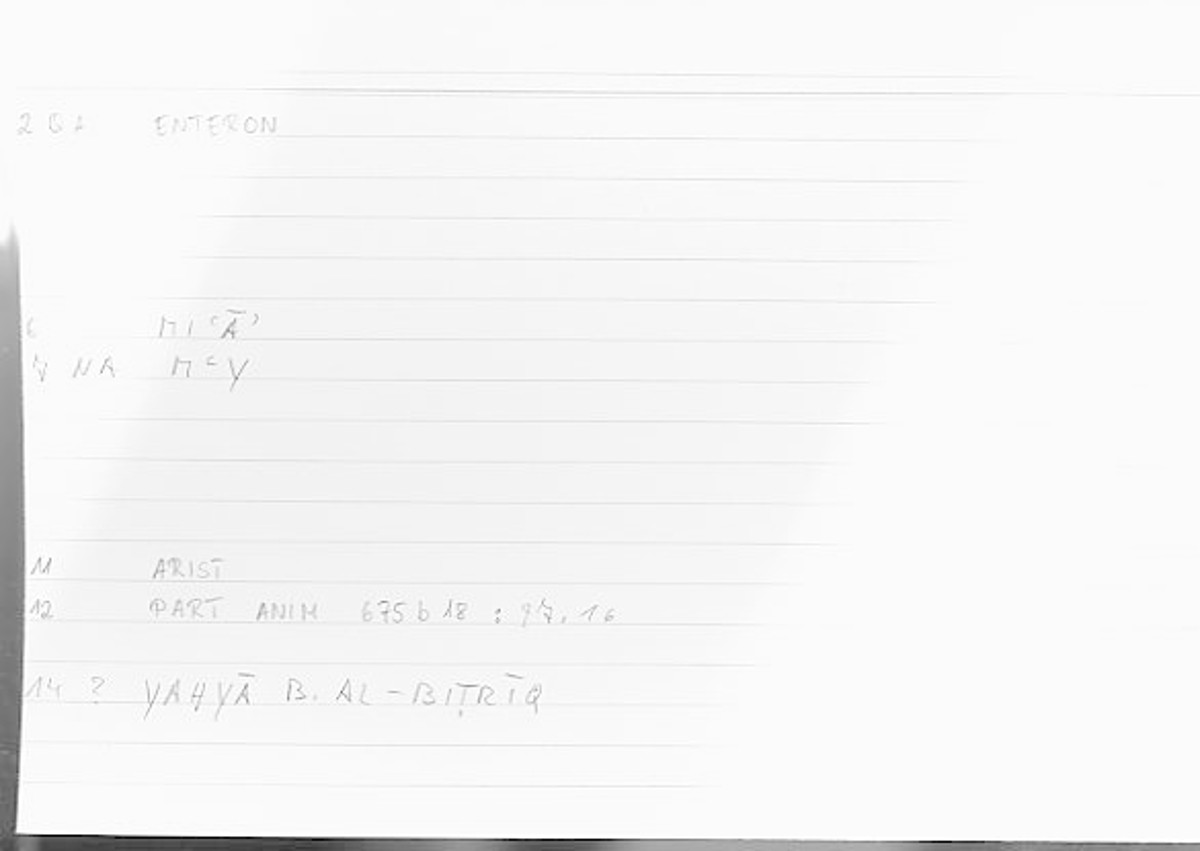 2 GA ENTERON
6 MI ʿĀʾ
7 NA MʿY
11 ARIST
12 PART ANIM 675 b 18 : 97, 16
14 ? YAḤYĀ B. AL-BIṬRĪQ